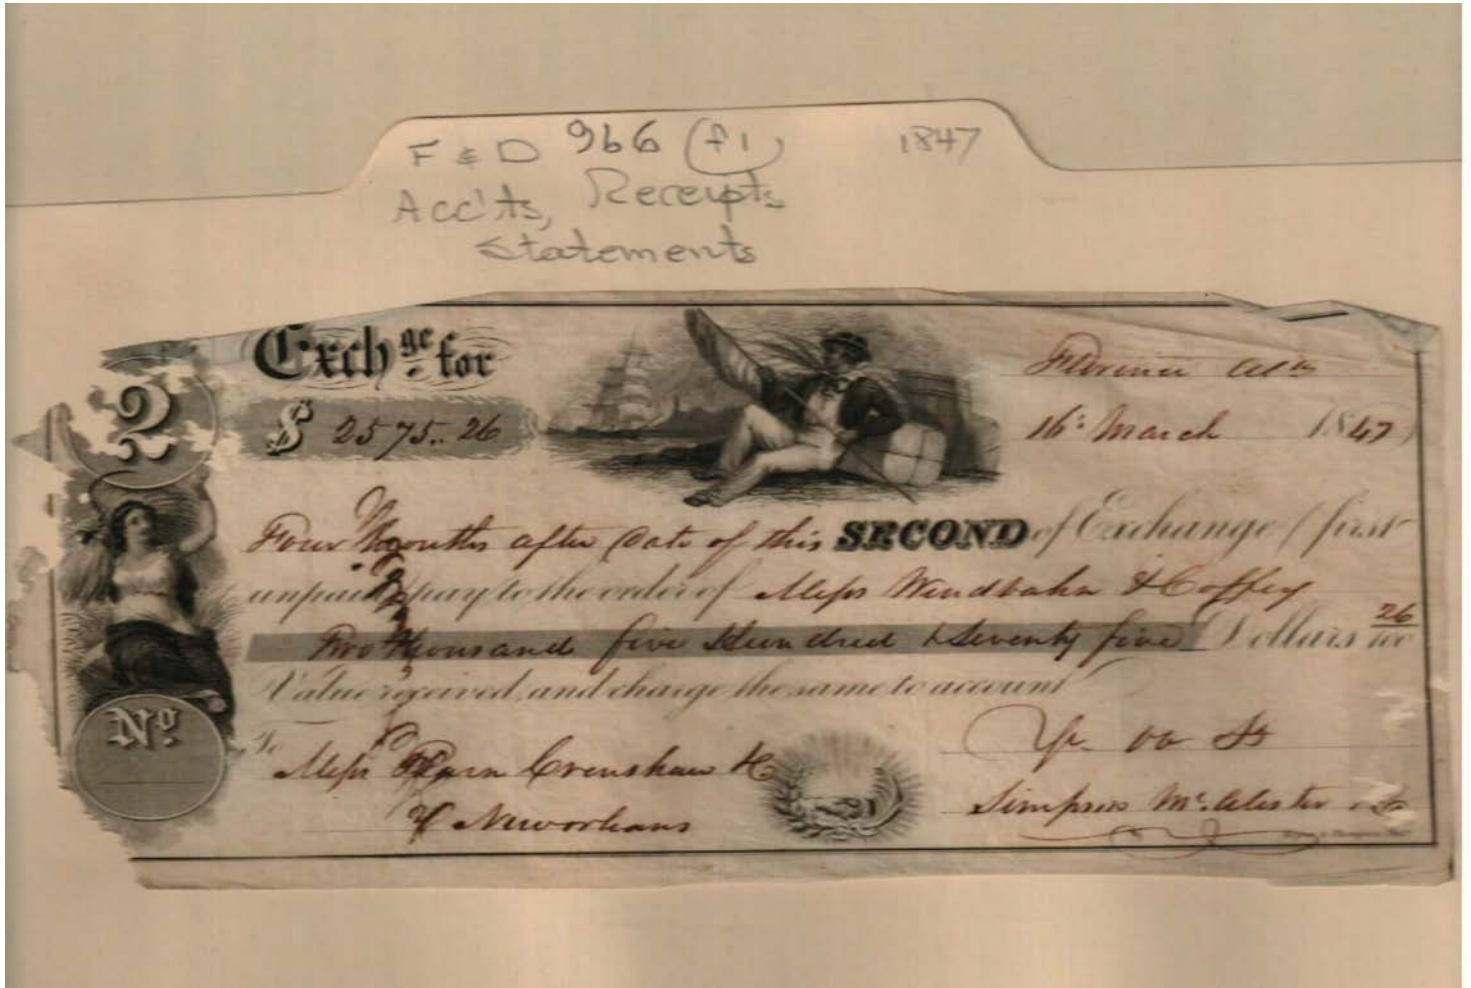 F & D 966 (f1) 1847
Acc'ts, Receipts
Statements
2
Exchge. for
$ 2575.. 26
Florence Ala
16th March 1847
Four Months after Date of this SECOND of Exchange (first
unpaid) pay to the order of Messrs & Coffey
Two thousand five Hundred & Seventy five Dollars 26/100
Value received, and charge the same to account
To
Messrs Crenshaw & Co
of New orleans
Yr. Ob St
Simpson McAlester & Co
No.